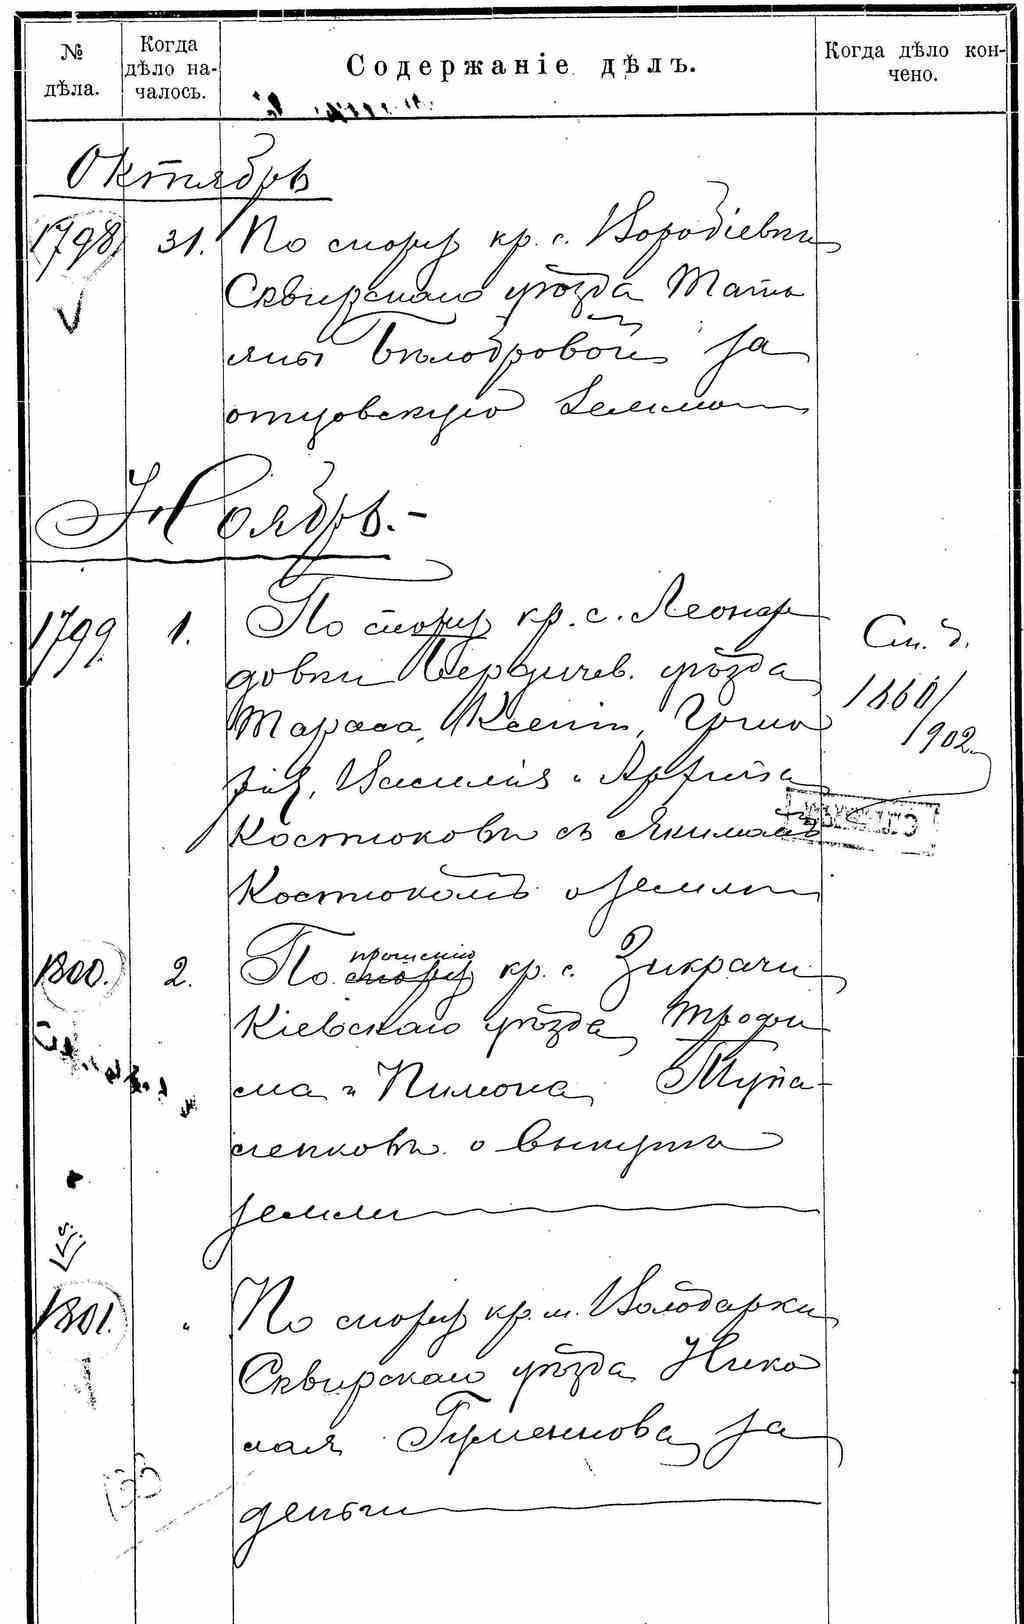 № дѣла.
Когда дѣло началось.
Содержаніе дѣлъ.
Когда дѣло кончено.
Октябрь
1798 31. По спору кр. с. Воробіевки
Сквирскаго уѣзда Тать
яны Бѣлобровой за
отцовскую землю
Ноябрь.-
1799. 1. По спору кр. с. Леонар
довки Бердичев. уѣзда
Тараса, Ксеніи, Григо
рія, Василія и
Костюковъ съ Якимомъ
Костюкомъ о землѣ
См. д.
1902
1800. 2. По спору прошенію кр. с. Зикрачи
Кіевскаго уѣзда Трофи
ма и Пимона
о выкупѣ
земли
1801. " По спору кр. м. Володарки
Сквирскаго уѣзда Нико
лая Гуменюкова за
деньги